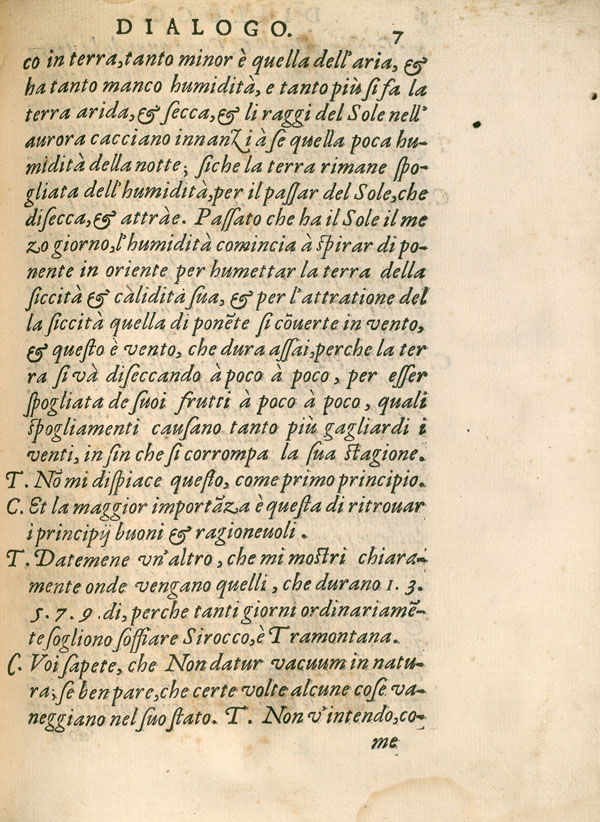 DIALOGO. 7
co in terra, tanto minor è quella dell'aria, &
ha tanto manco humidità, e tanto più si fa la
terra arida, & secca, & li raggi del Sole nell'
aurora cacciano innanzi à se quella poca hu-
midità della notte; siche la terra rimane spo-
gliata dell'humidità, per il passar del Sole, che
disecca, & attràe. Passato che ha il Sole il me
zo giorno, l'humidità comincia à spirar di po-
nente in oriente per humettar la terra della
siccità & càlidità sua, & per l'attratione del
la siccità quella di ponẽte si cõuerte in vento,
& questo è vento, che dura assai, perche la ter
ra si và diseccando à poco à poco, per esser
spogliata de suoi frutti à poco à poco, quali
spogliamenti causano tanto più gagliardi i
venti, in sin che si corrompa la sua stagione.
T. Nõ mi dispiace questo, come primo principio.
C. Et la maggior importãza è questa di ritrouar
i principij buoni & ragioneuoli.
T. Datemene vn'altro, che mi mostri chiara-
mente onde vengano quelli, che durano 1. 3.
5. 7. 9. di, perche tanti giorni ordinariamẽ-
te sogliono soffiare Sirocco, è Tramontana.
C. Voi sapete, che Non datur vacuum in natu-
ra; se ben pare, che certe volte alcune cose va-
neggiano nel suo stato. T. Non v'intendo, co-
me